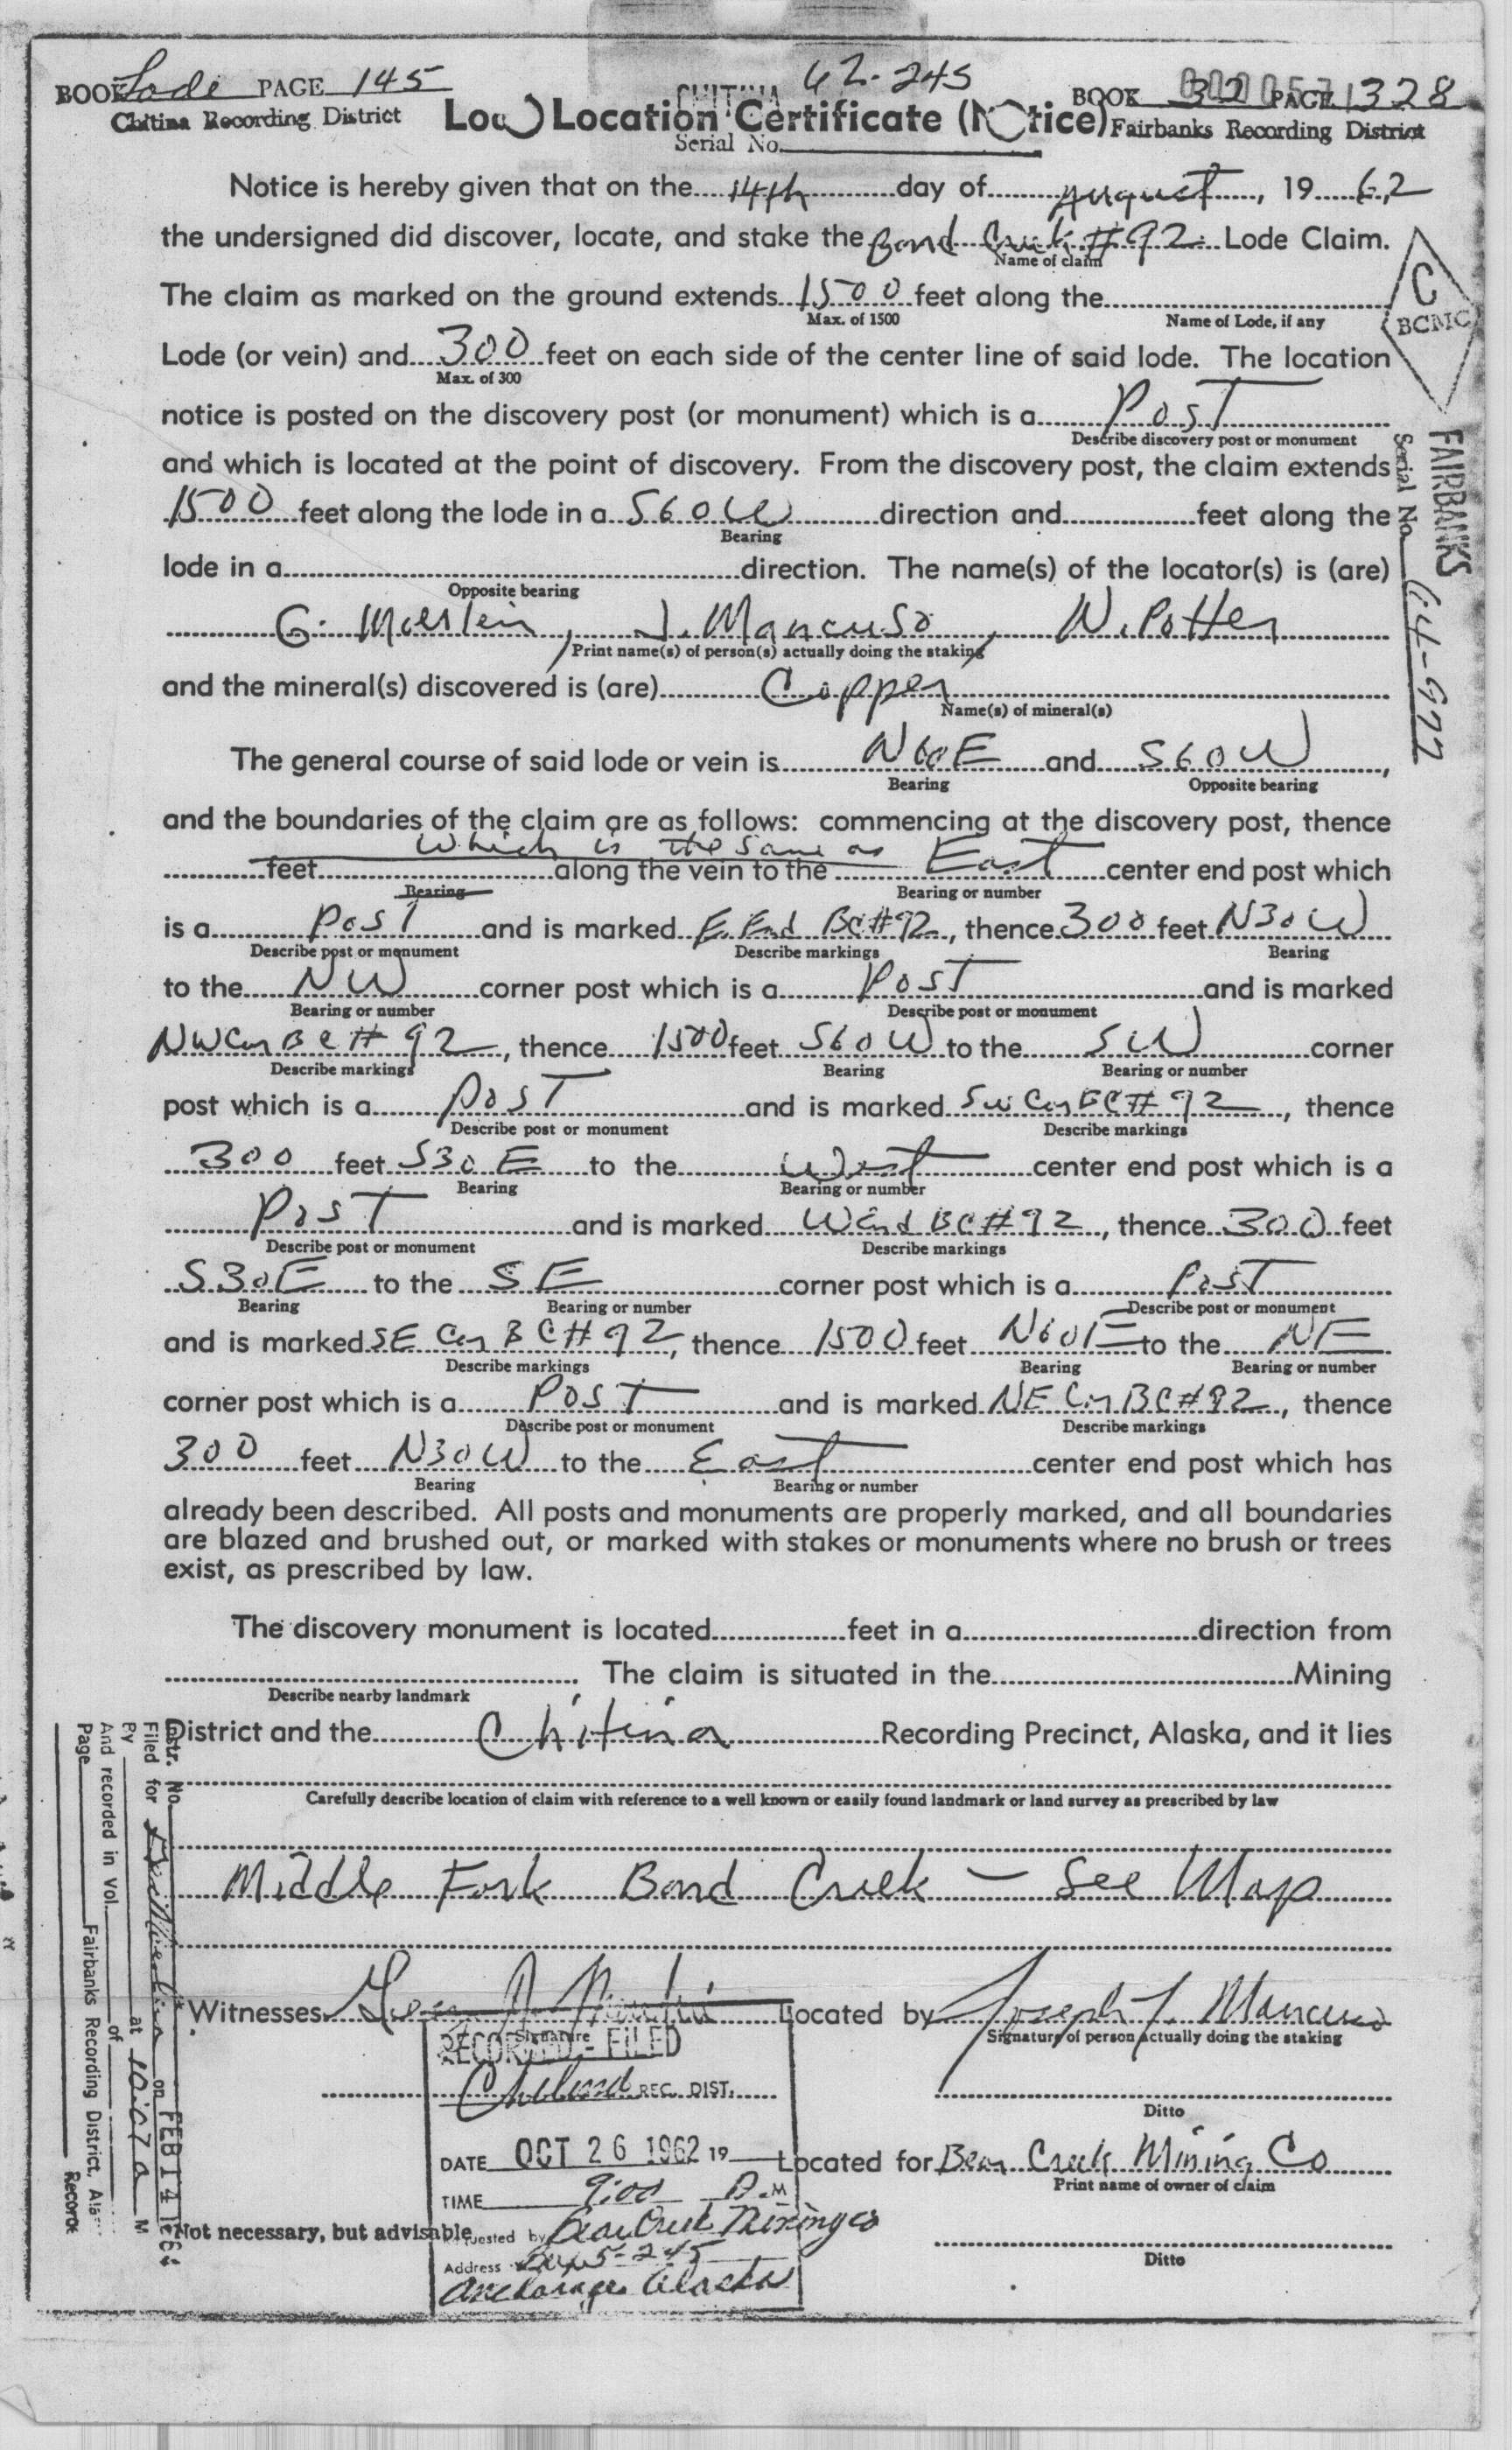 BOOK Lode PAGE 145
Chitina Recording District
CHITINA 62-245
Serial No.
BOOK 32 PAGE 1328
Fairbanks Recording District
Location Certificate (Notice)
Notice is hereby given that on the 14th day of August, 1962
the undersigned did discover, locate, and stake the Bond Creek #92 Lode Claim.
Name of claim
The claim as marked on the ground extends 1500 feet along the
Max. of 1500 Name of Lode, if any
C
BCMC
Lode (or vein) and 300 feet on each side of the center line of said lode. The location
Max. of 300
notice is posted on the discovery post (or monument) which is a Post
Describe discovery post or monument
and which is located at the point of discovery. From the discovery post, the claim extends
1500 feet along the lode in a S60W direction and feet along the
Bearing
lode in a direction. The name(s) of the locator(s) is (are)
Opposite bearing
G. Moerlein, J. Mancuso, N. Potter
Print name(s) of person(s) actually doing the staking
FAIRBANKS
Serial No. 64-977
and the mineral(s) discovered is (are) Copper
Name(s) of mineral(s)
The general course of said lode or vein is N60E and S60W,
Bearing Opposite bearing
and the boundaries of the claim are as follows: commencing at the discovery post, thence
which is the same as
feet along the vein to the East center end post which
Bearing Bearing or number
is a Post and is marked E. End BC#92, thence 300 feet N30W
Describe post or monument Describe markings Bearing
to the NW corner post which is a Post and is marked
Bearing or number Describe post or monument
NW Cor BC #92, thence 1500 feet S60W to the SW corner
Describe markings Bearing Bearing or number
post which is a Post and is marked SW Cor BC#92, thence
Describe post or monument Describe markings
300 feet S30E to the West center end post which is a
Bearing Bearing or number
Post and is marked W End BC#92, thence 300 feet
Describe post or monument Describe markings
S30E to the SE corner post which is a Post
Bearing Bearing or number Describe post or monument
and is marked SE Cor BC#92, thence 1500 feet N60E to the NE
Describe markings Bearing Bearing or number
corner post which is a Post and is marked NE Cor BC#92, thence
Describe post or monument Describe markings
300 feet N30W to the East center end post which has
Bearing Bearing or number
already been described. All posts and monuments are properly marked, and all boundaries
are blazed and brushed out, or marked with stakes or monuments where no brush or trees
exist, as prescribed by law.
The discovery monument is located feet in a direction from
. The claim is situated in the Mining
Describe nearby landmark
District and the Chitina Recording Precinct, Alaska, and it lies
Carefully describe location of claim with reference to a well known or easily found landmark or land survey as prescribed by law
Middle Fork Bond Creek — See Map
Witnesses Located by Joseph J. Mancuso
Signature Signature of person actually doing the staking
RECORDED - FILED
REC. DIST.
Ditto
DATE OCT 26 1962 19
Located for Bear Creek Mining Co
Print name of owner of claim
TIME 9:00 A.M
Not necessary, but advisable
Requested by Bear Creek Mining Co
Address Box 5-245
Anchorage Alaska
Ditto
Instr. No.
Filed for on FEB 14
By at 10:07 a M
And recorded in Vol. of
Page Fairbanks Recording District,